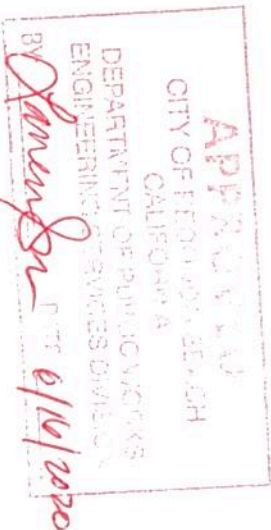 APPROVED
CITY OF REDONDO BEACH
CALIFORNIA
DEPARTMENT OF PUBLIC WORKS
ENGINEERING SERVICES DIVISION
BY DATE 6/16/2020